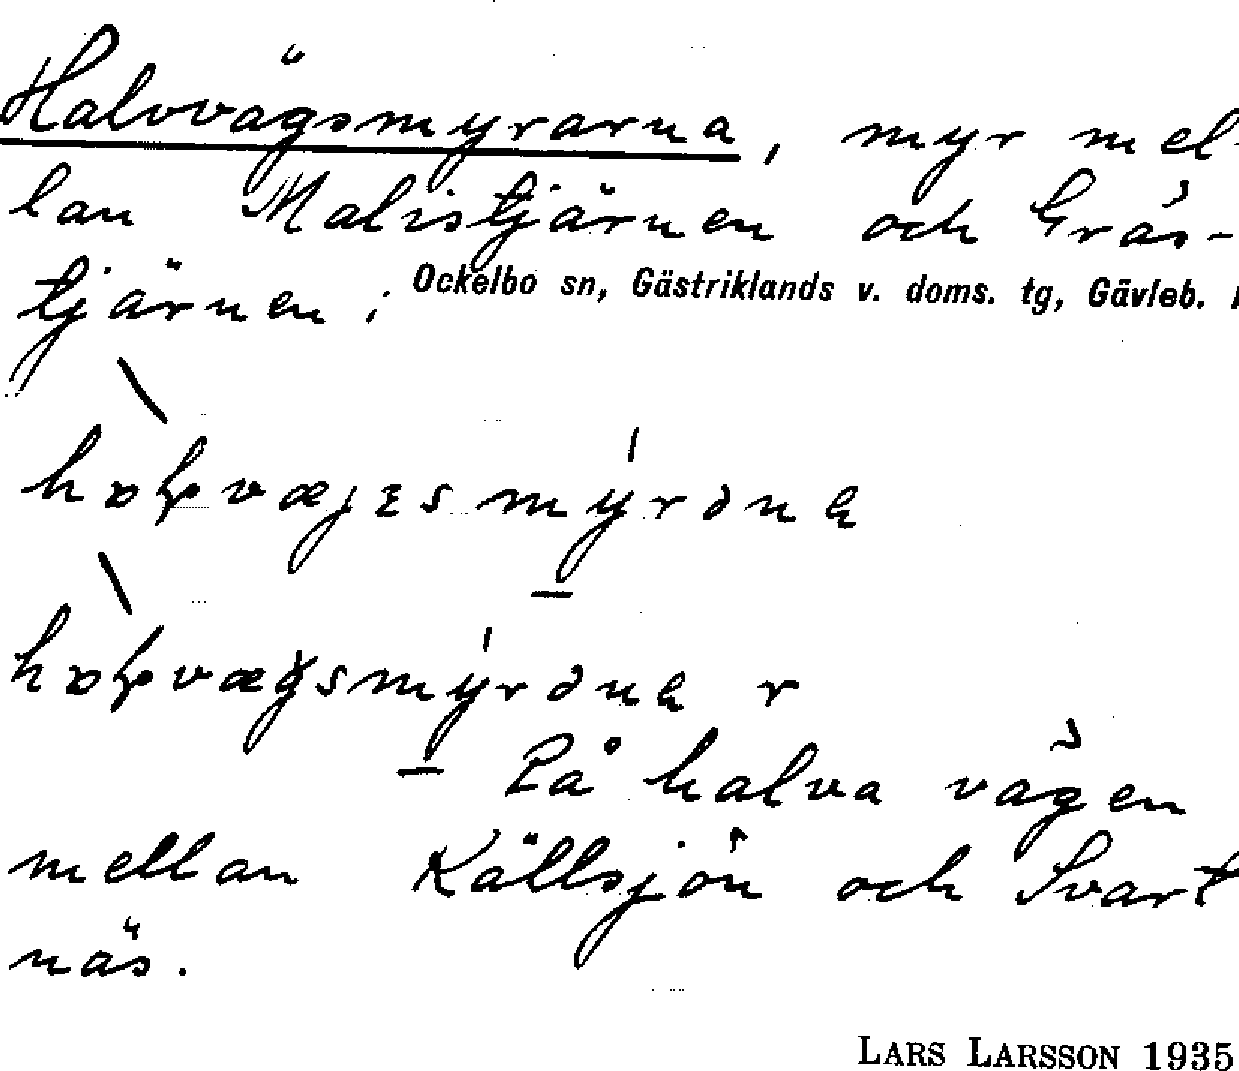 Halvvägsmyrarna, myr mel-
lan Malistjärnen och Gräs-
tjärnen.
Ockelbo sn, Gästriklands v. doms. tg, Gävleb.
På halva vägen
mellan Källsjön och Svart
näs.
LARS LARSSON 1935